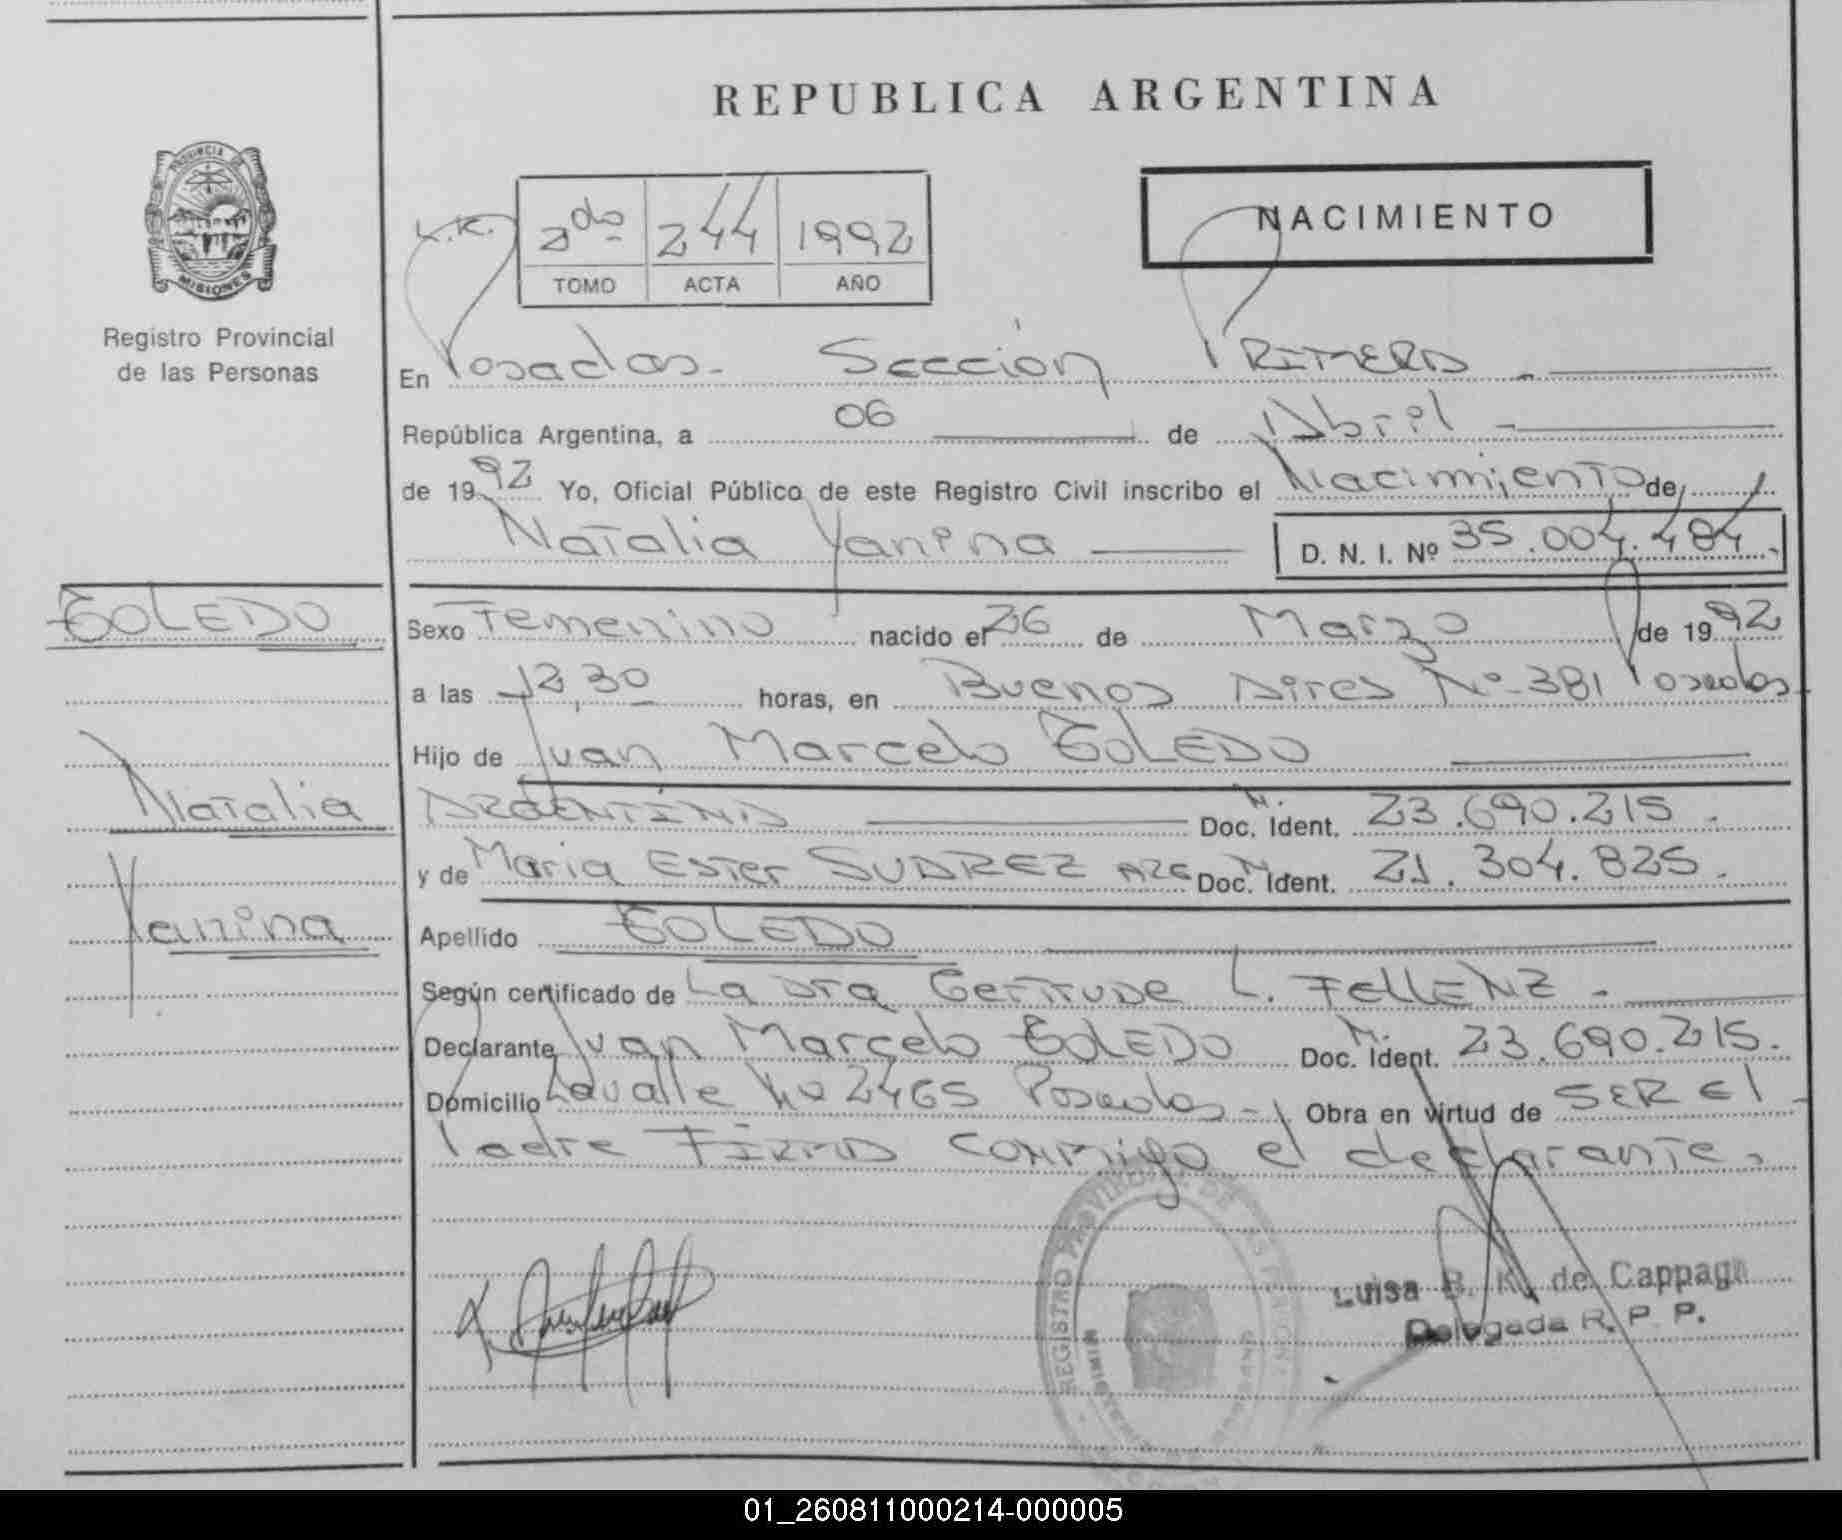 REPUBLICA ARGENTINA
PROVINCIA DE
MISIONES
Registro Provincial
de las Personas
2do 244 1992
TOMO ACTA AÑO
NACIMIENTO
En Posadas - Sección PRIMERA -
República Argentina, a 06 de Abril -
de 1992 Yo, Oficial Público de este Registro Civil inscribo el Nacimiento de
Natalia Yanina D. N. I. Nº 35.004.484.
TOLEDO
Sexo Femenino nacido el 26 de Marzo de 1992
a las 12,30 horas, en Buenos Aires Nº 381 Posadas
Hijo de Juan Marcelo TOLEDO
Natalia
ARGENTINA Doc. Ident. 23.690.215.
y de Maria Ester SUAREZ ARG Doc. Ident. 21.304.825.
Yanina
Apellido TOLEDO
Según certificado de La Dra Gertrude L. FELLENZ -
Declarante Juan Marcelo TOLEDO Doc. Ident. 23.690.215.
Domicilio Lavalle Nº 2465 Posadas - Obra en virtud de SER El
Padre FIRMA conmigo el declarante.
REGISTRO PROVINCIAL DE LAS PERSONAS
Luisa B. K. de Cappagn
Delegada R. P. P.
01_260811000214-000005